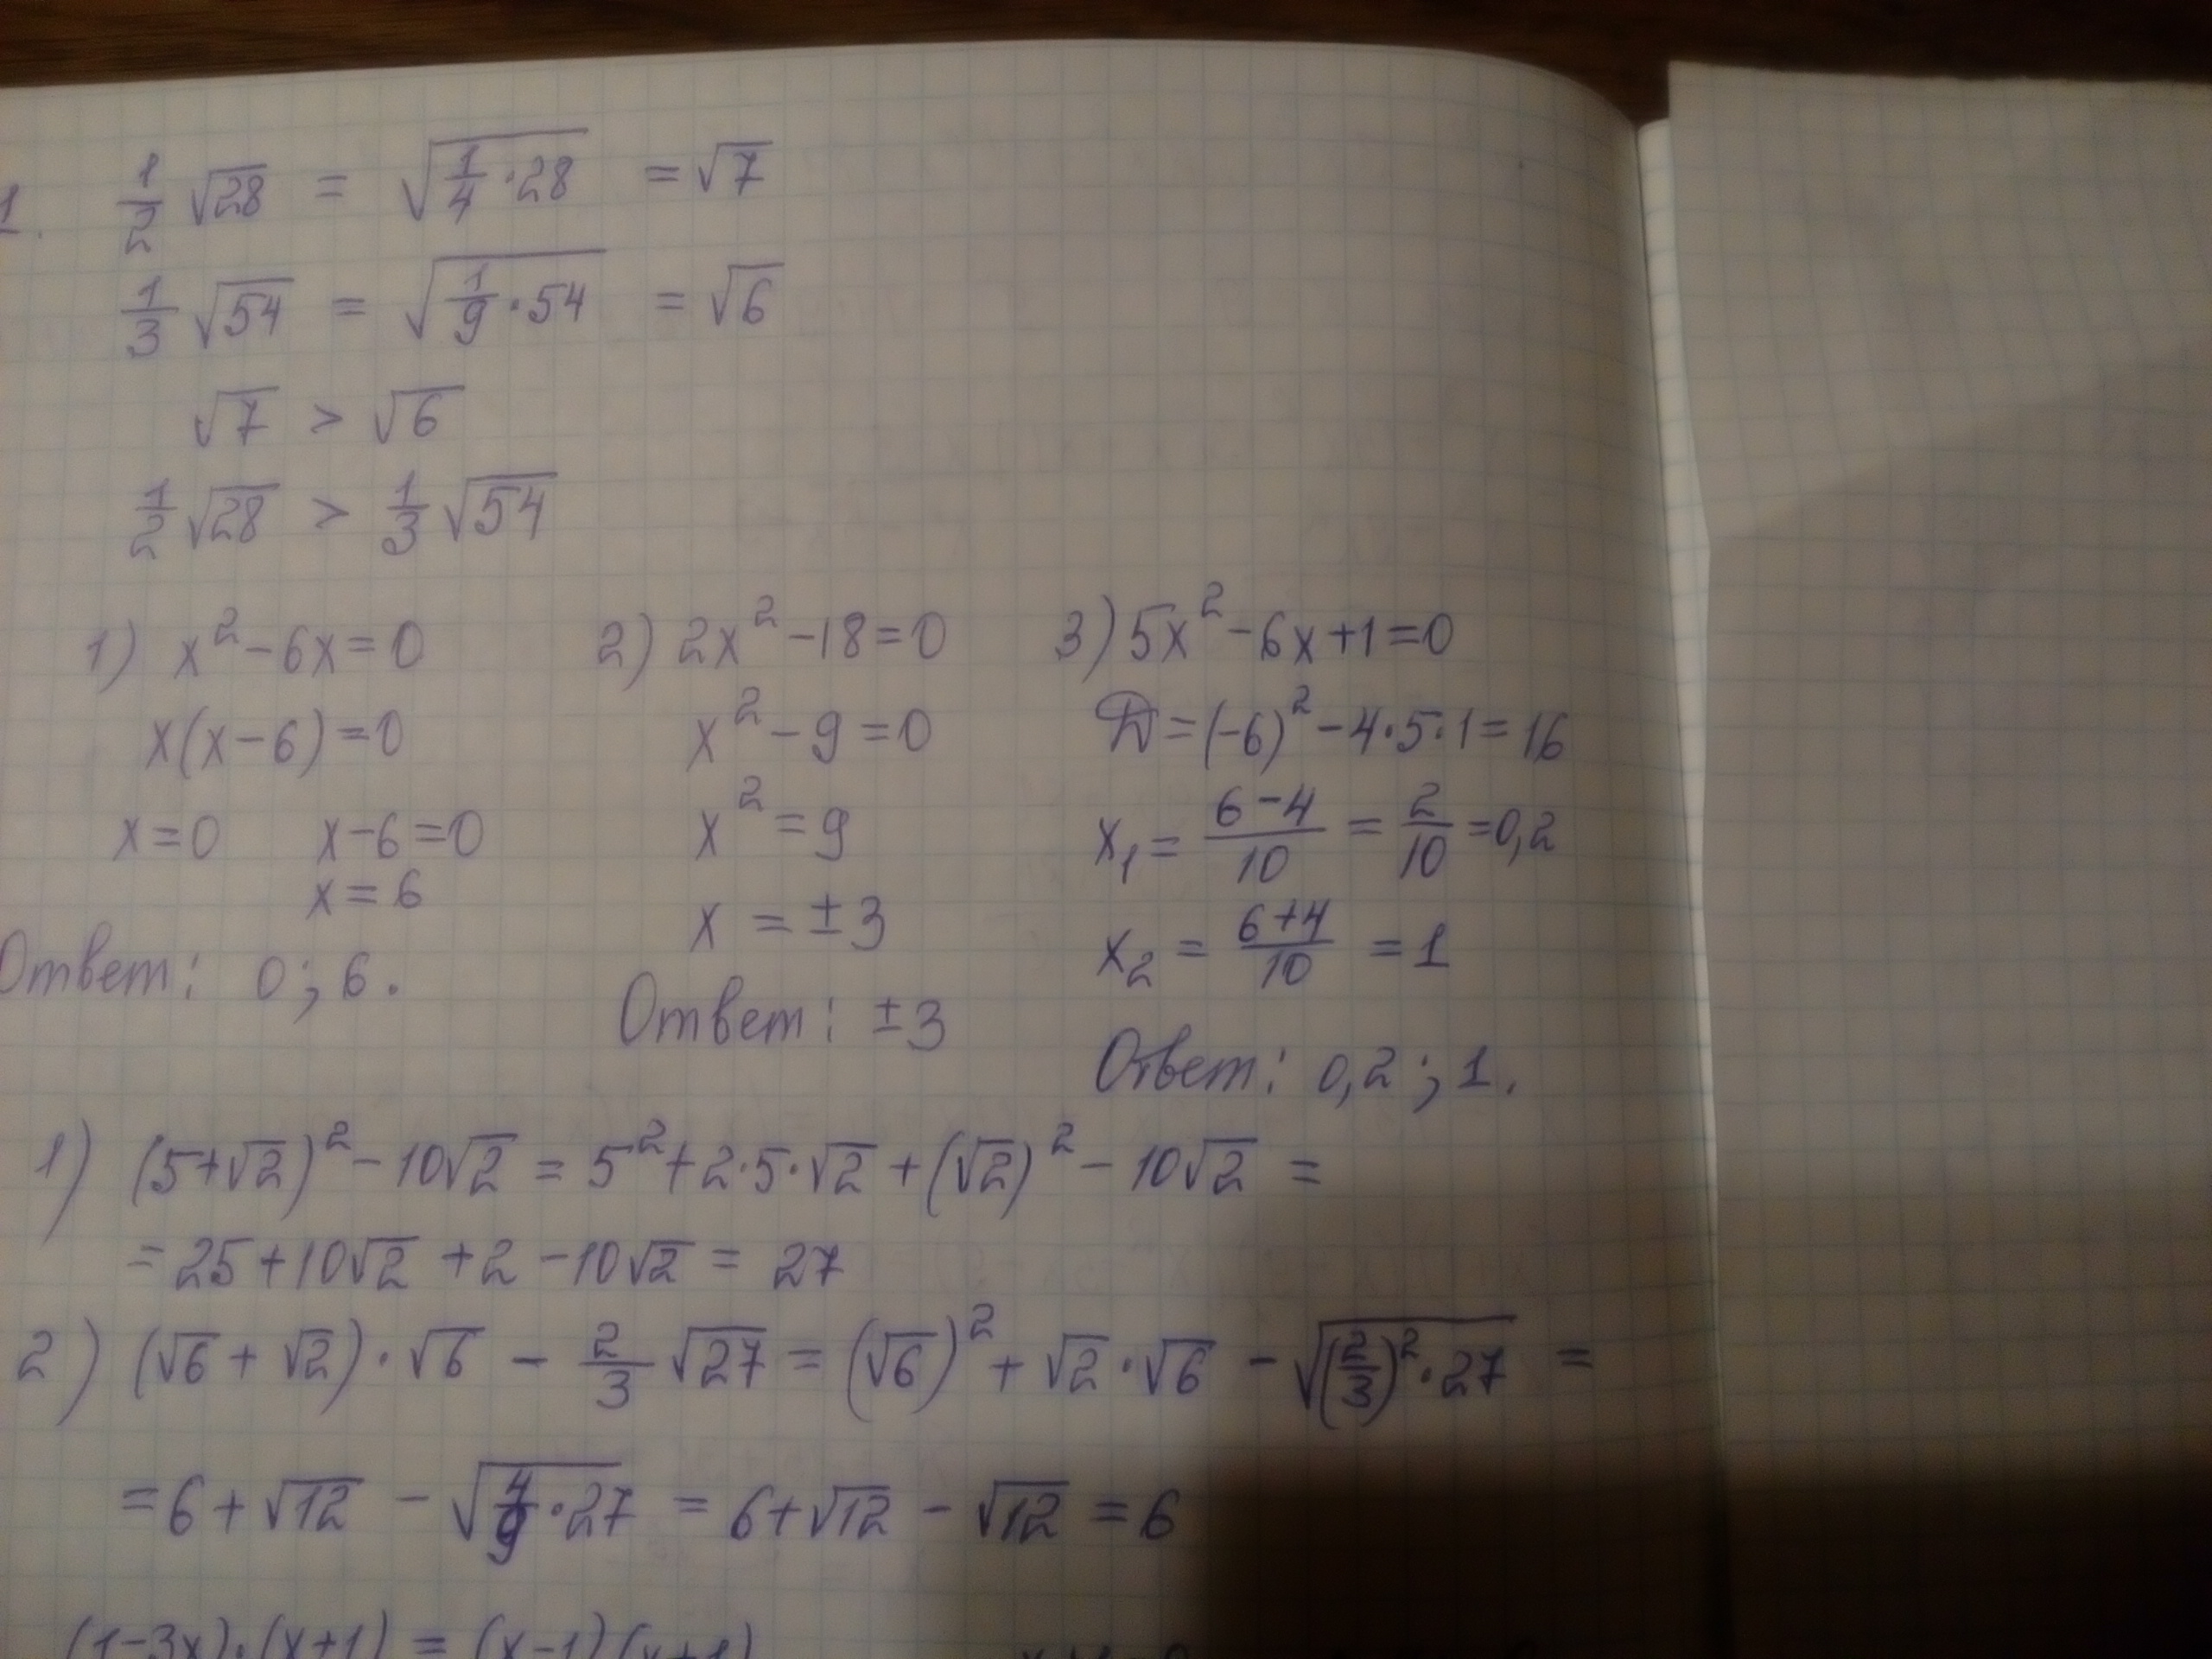 1. 1/2 √28 = √(1/4 · 28) = √7
1/3 √54 = √(1/9 · 54) = √6
√7 > √6
1/2 √28 > 1/3 √54
1) x² - 6x = 0
x(x - 6) = 0
x = 0 x - 6 = 0
x = 6
Ответ: 0; 6.
2) 2x² - 18 = 0
x² - 9 = 0
x² = 9
x = ±3
Ответ: ±3
3) 5x² - 6x + 1 = 0
D = (-6)² - 4·5·1 = 16
x₁ = (6 - 4)/10 = 2/10 = 0,2
x₂ = (6 + 4)/10 = 1
Ответ: 0,2; 1.
1) (5 + √2)² - 10√2 = 5² + 2·5·√2 + (√2)² - 10√2 =
= 25 + 10√2 + 2 - 10√2 = 27
2) (√6 + √2) · √6 - 2/3 √27 = (√6)² + √2 · √6 - √((2/3)² · 27) =
= 6 + √12 - √(4/9 · 27) = 6 + √12 - √12 = 6
(1 - 3x)·(x + 1) = (x - 1)(x + 1)